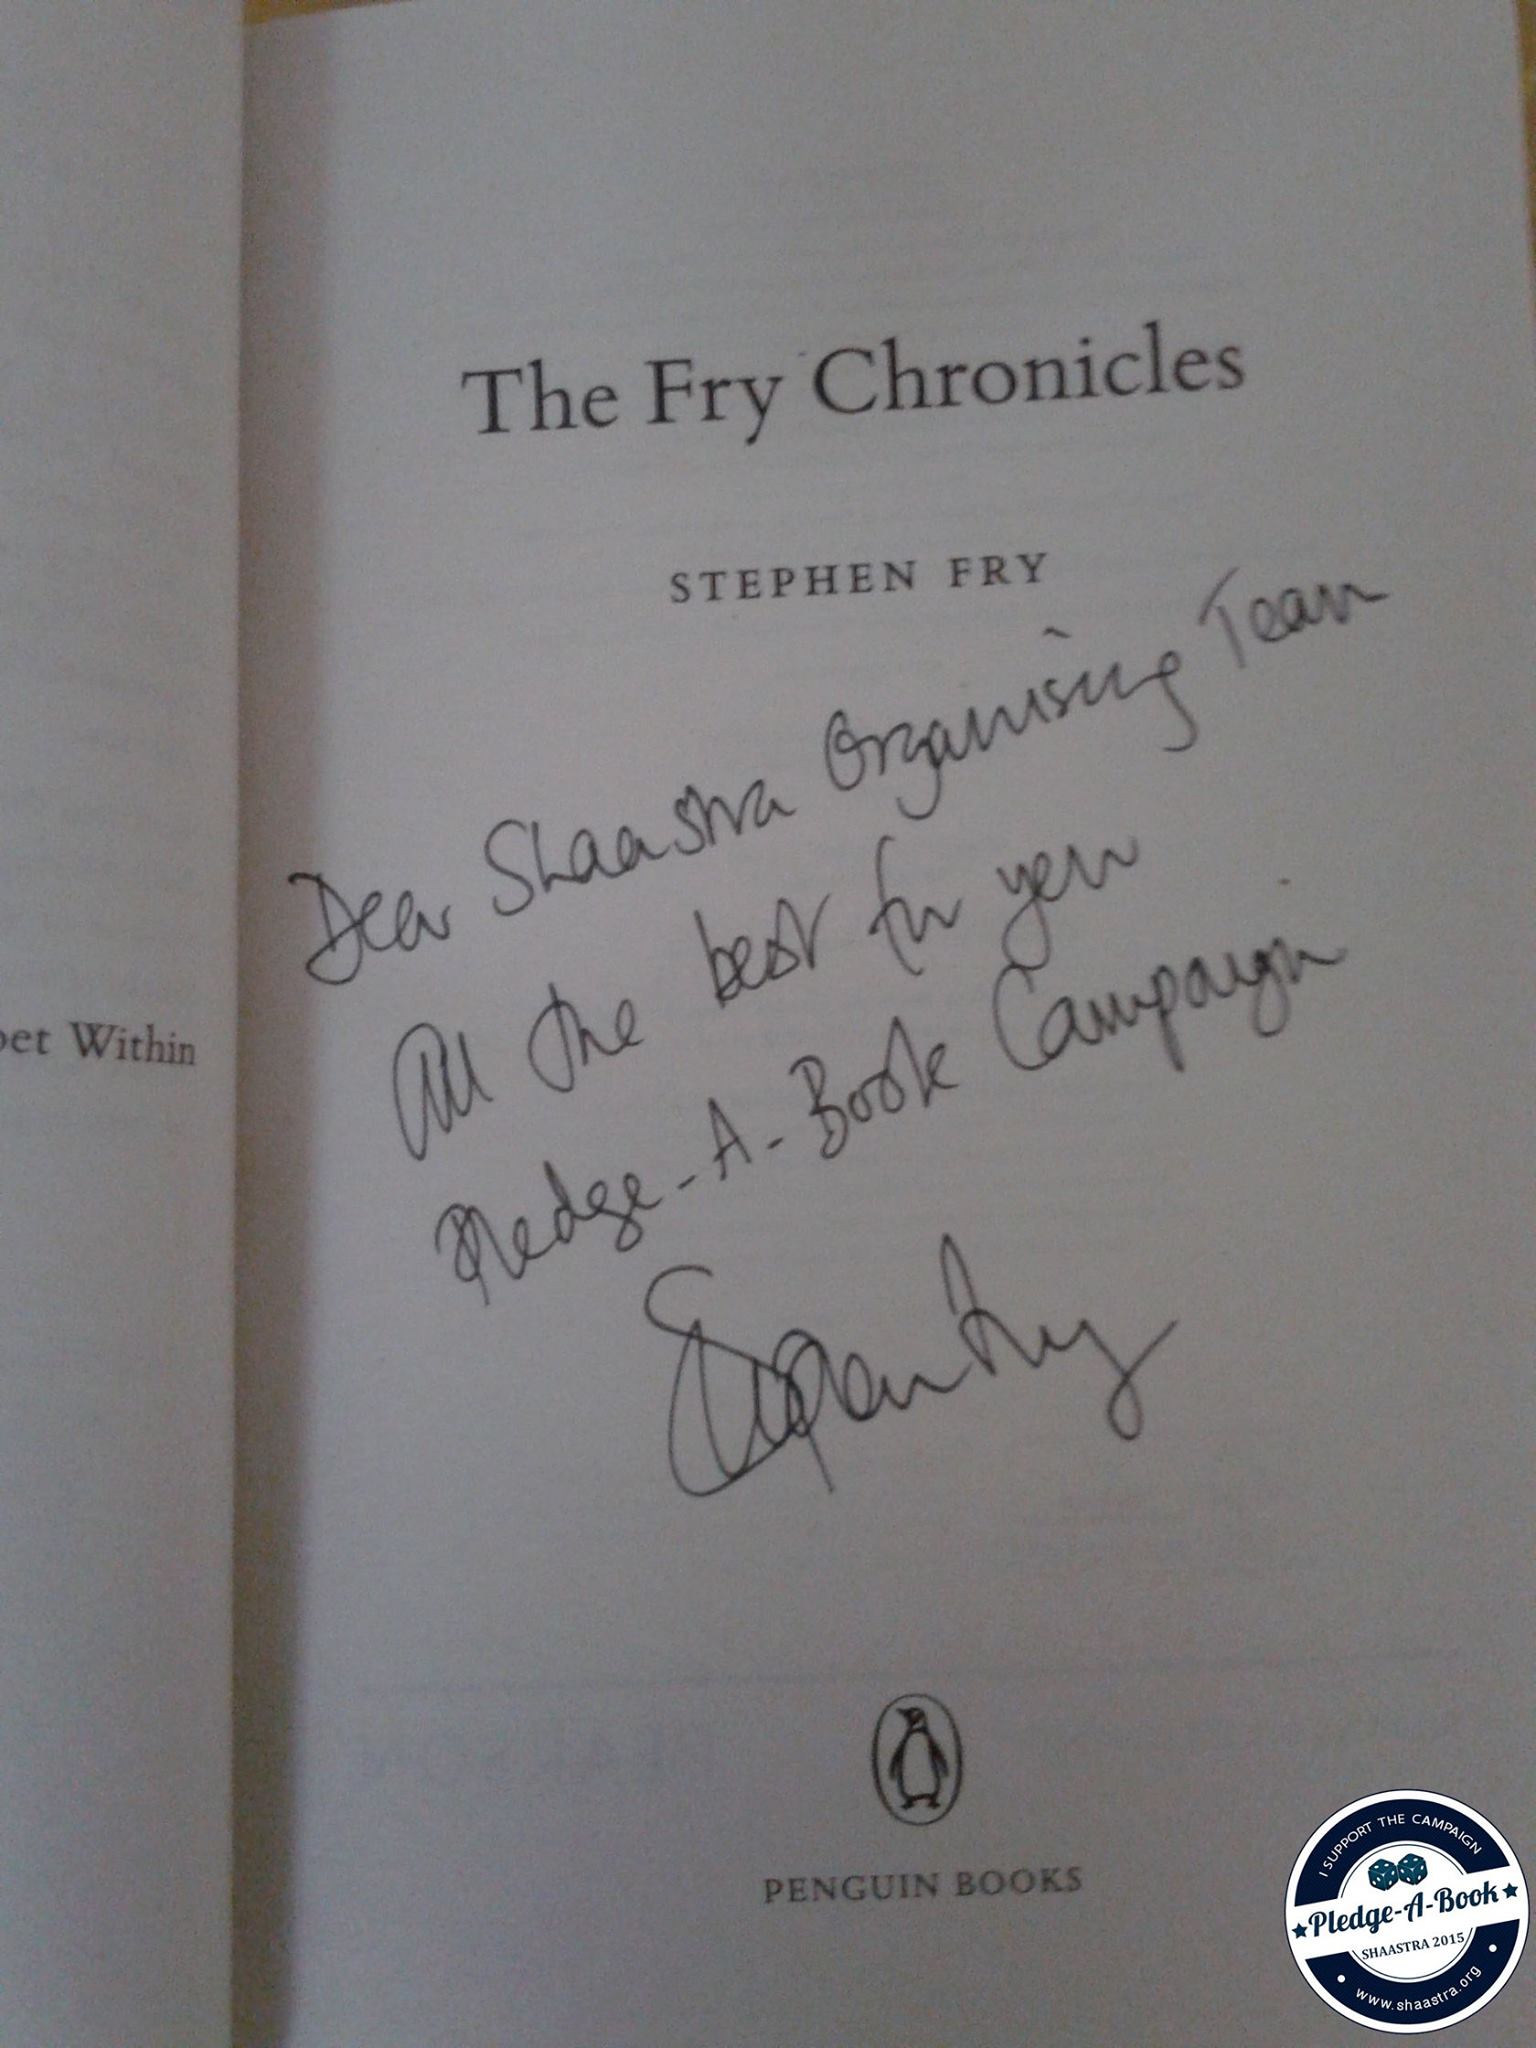 The Fry Chronicles
STEPHEN FRY
Dear Shaastra Organising Team
All the best for your
Pledge-A-Book Campaign
Stephen Fry
PENGUIN BOOKS
Within
I SUPPORT THE CAMPAIGN
Pledge-A-Book
SHAASTRA 2015
www.shaastra.org